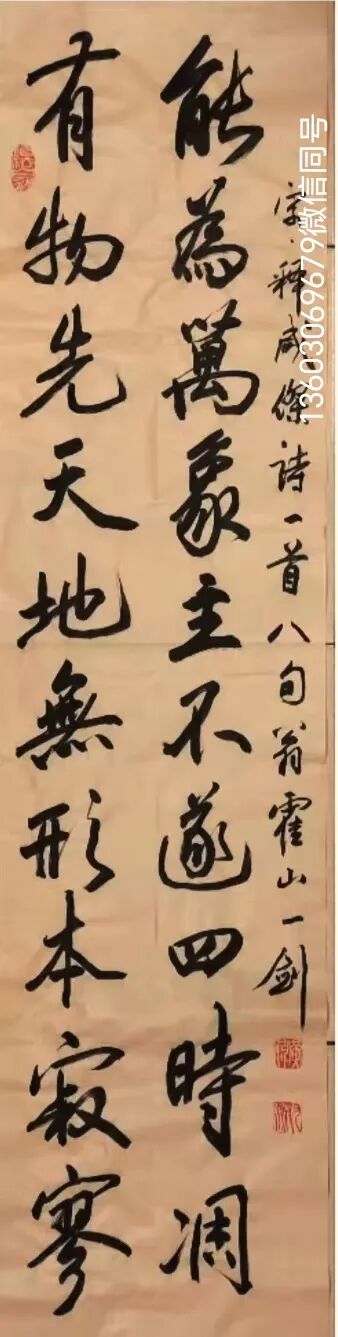 有物先天地無形本寂寥
能為萬象主不遂四時凋
宋·释咸傑詩一首八旬翁霍山一剑
13603069679微信同号